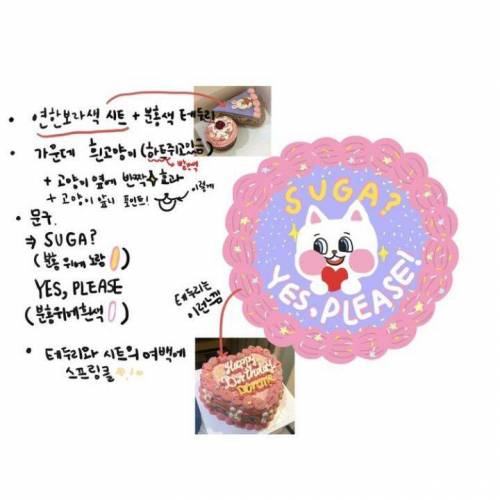 • 연한보라색 시트 + 분홍색 테두리
• 가운데 흰고양이 (하트쥐고있음)
빨간색
+ 고양이 옆에 반짝 효과
+ 고양이 앞니 포인트!
이렇게
• 문구.
⇒ SUGA?
(분홍 위에 노랑)
YES, PLEASE
(분홍위에흰색)
• 테두리와 시트의 여백에
스프링클
테두리는
이런느낌
SUGA?
YES, PLEASE!
Happy
Birthday